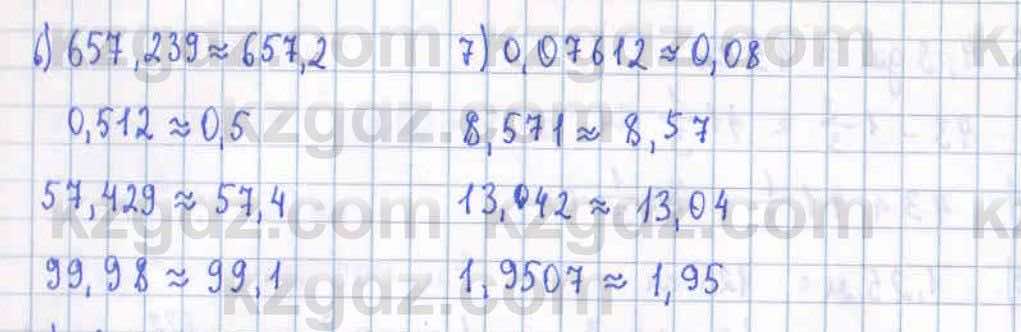 6) 657,239 ≈ 657,2
0,512 ≈ 0,5
57,429 ≈ 57,4
99,98 ≈ 99,1
7) 0,07612 ≈ 0,08
8,571 ≈ 8,57
13,042 ≈ 13,04
1,9507 ≈ 1,95
kzgdz.com
kzgdz.com
kzgdz.com
kzgdz.com